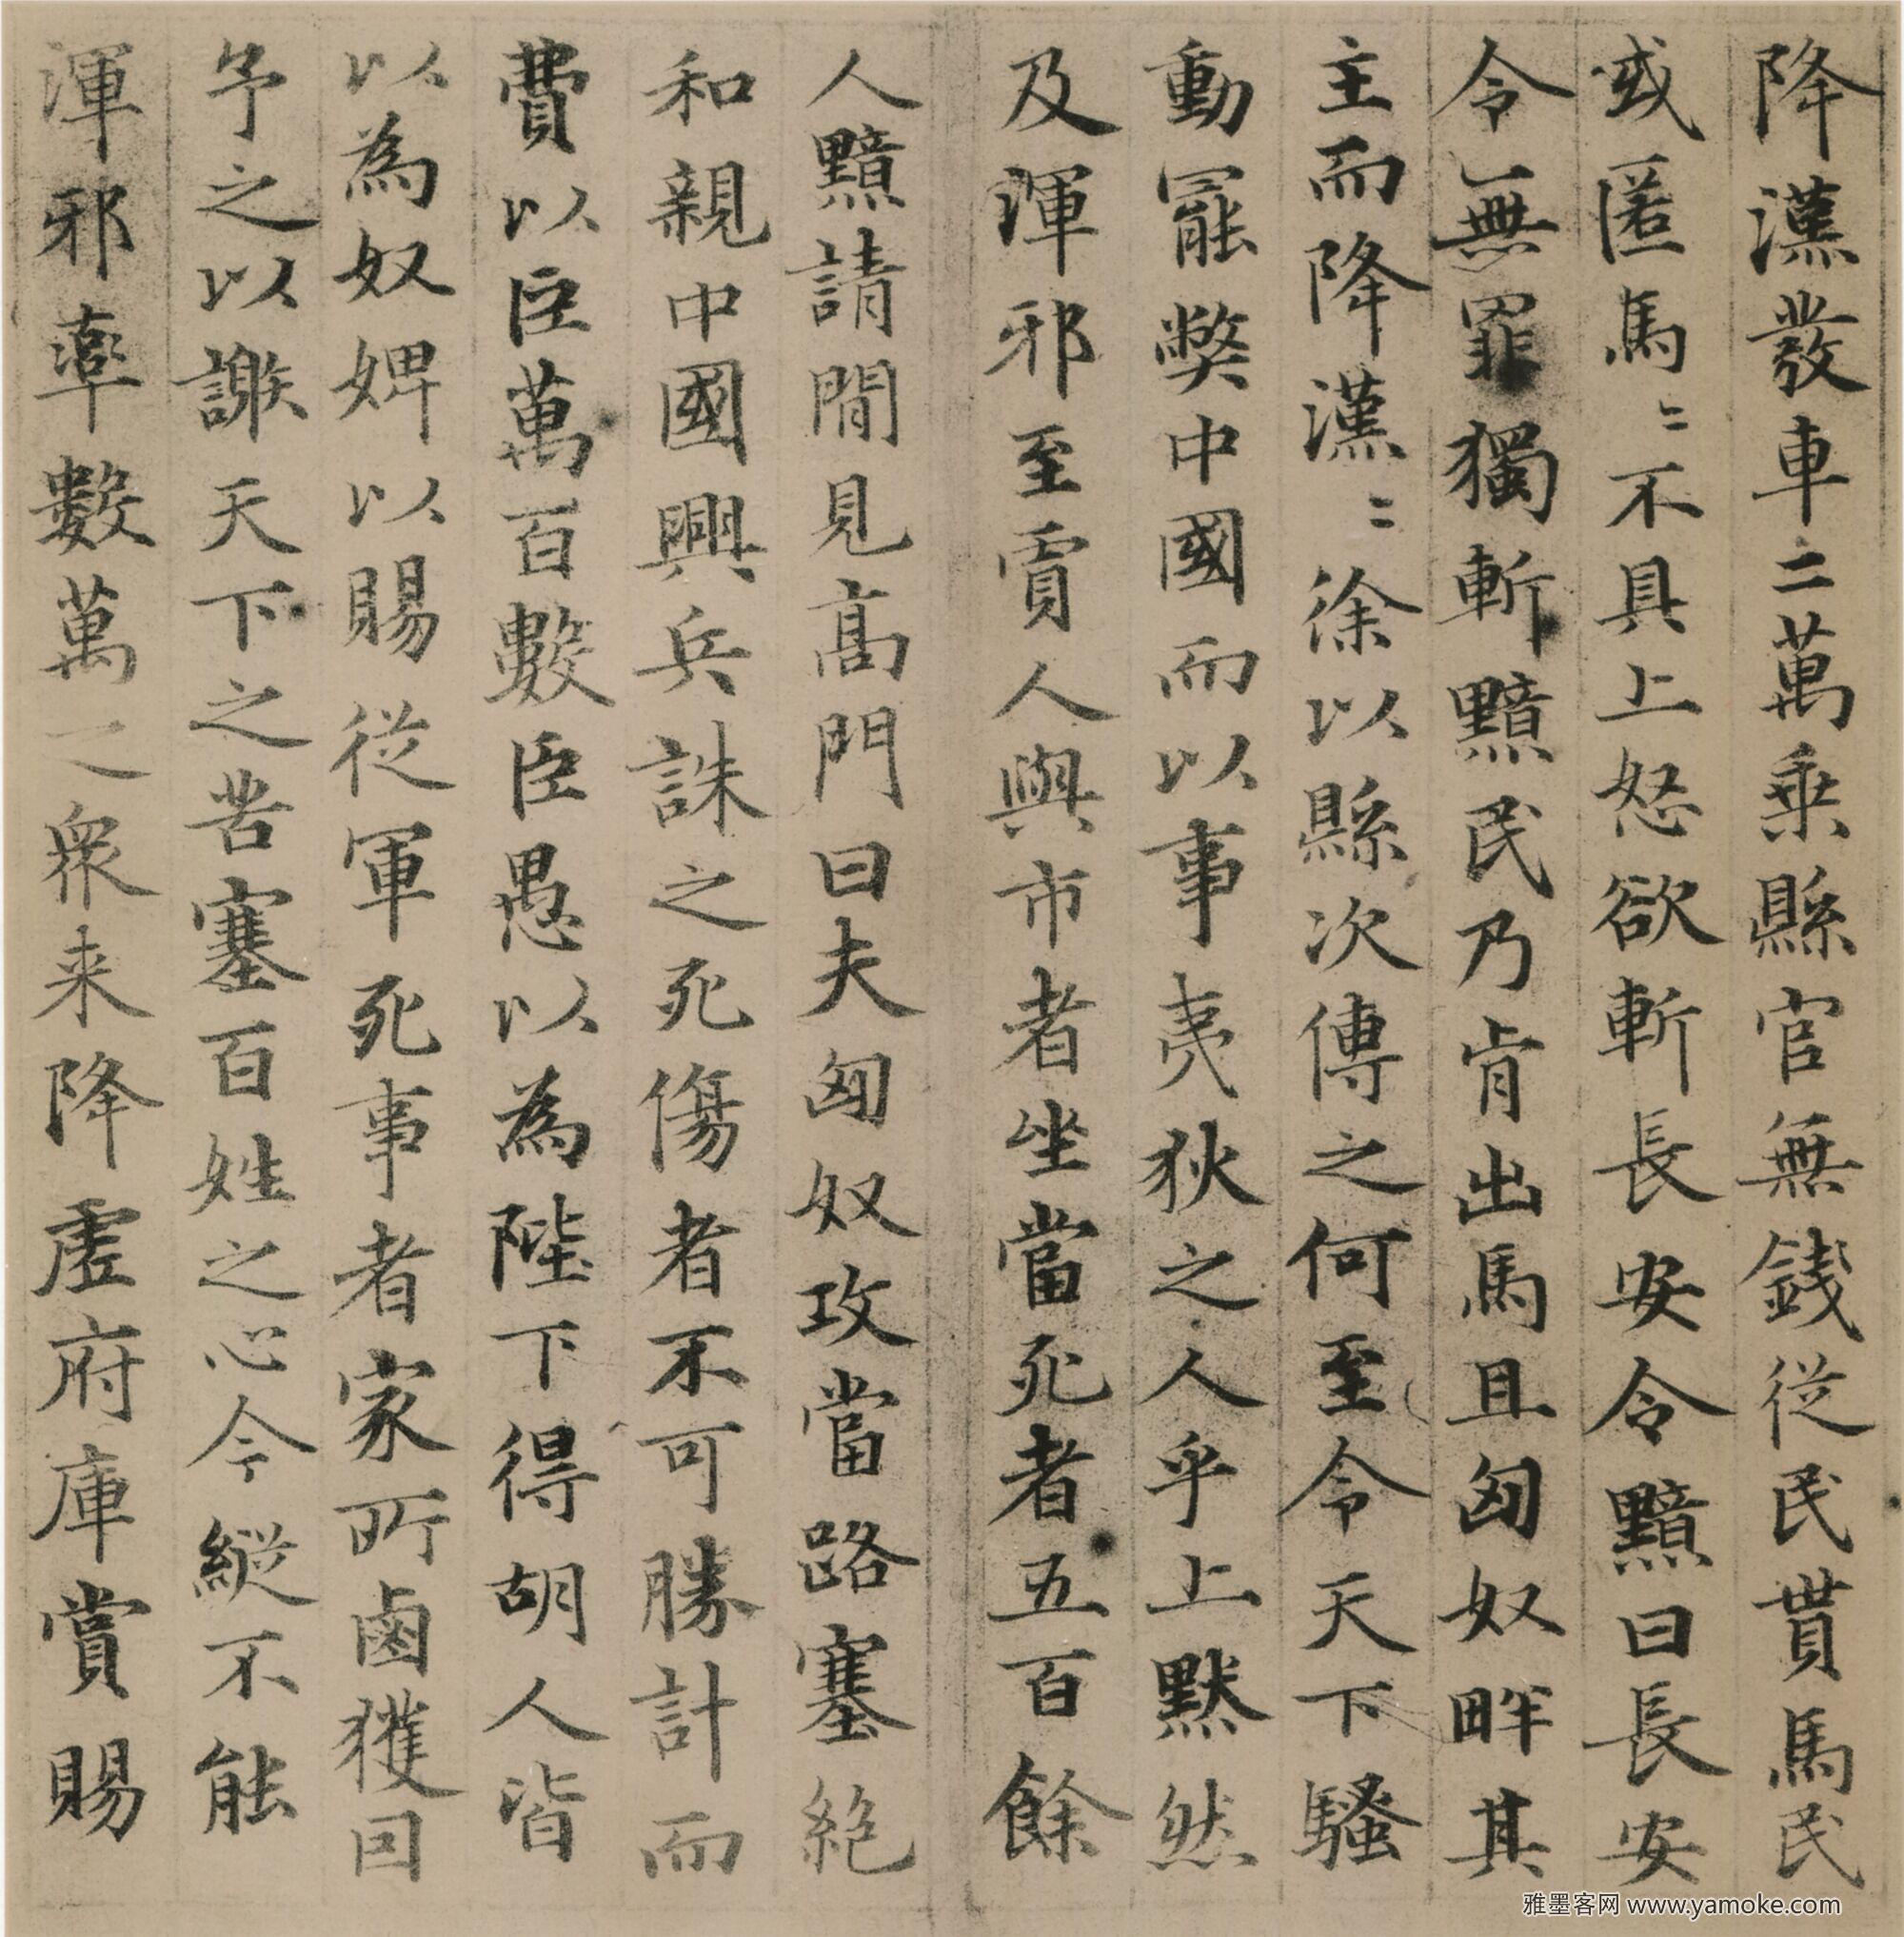 降漢發車二萬乘縣官無錢從民貰馬民
或匿馬〻不具上怒欲斬長安令黯曰長安
令無罪獨斬黯民乃肯出馬且匈奴畔其
主而降漢〻徐以縣次傳之何至令天下騷
動罷弊中國而以事夷狄之人乎上默然
及渾邪至賈人與市者坐當死者五百餘
人黯請間見高門曰夫匈奴攻當路塞絶
和親中國興兵誅之死傷者不可勝計而
費以臣萬百數臣愚以為陛下得胡人皆
以為奴婢以賜從軍死事者家所鹵獲因
予之以謝天下之苦塞百姓之心今縱不能
渾邪率數萬之衆来降虛府庫賞賜
雅墨客网 www.yamoke.com